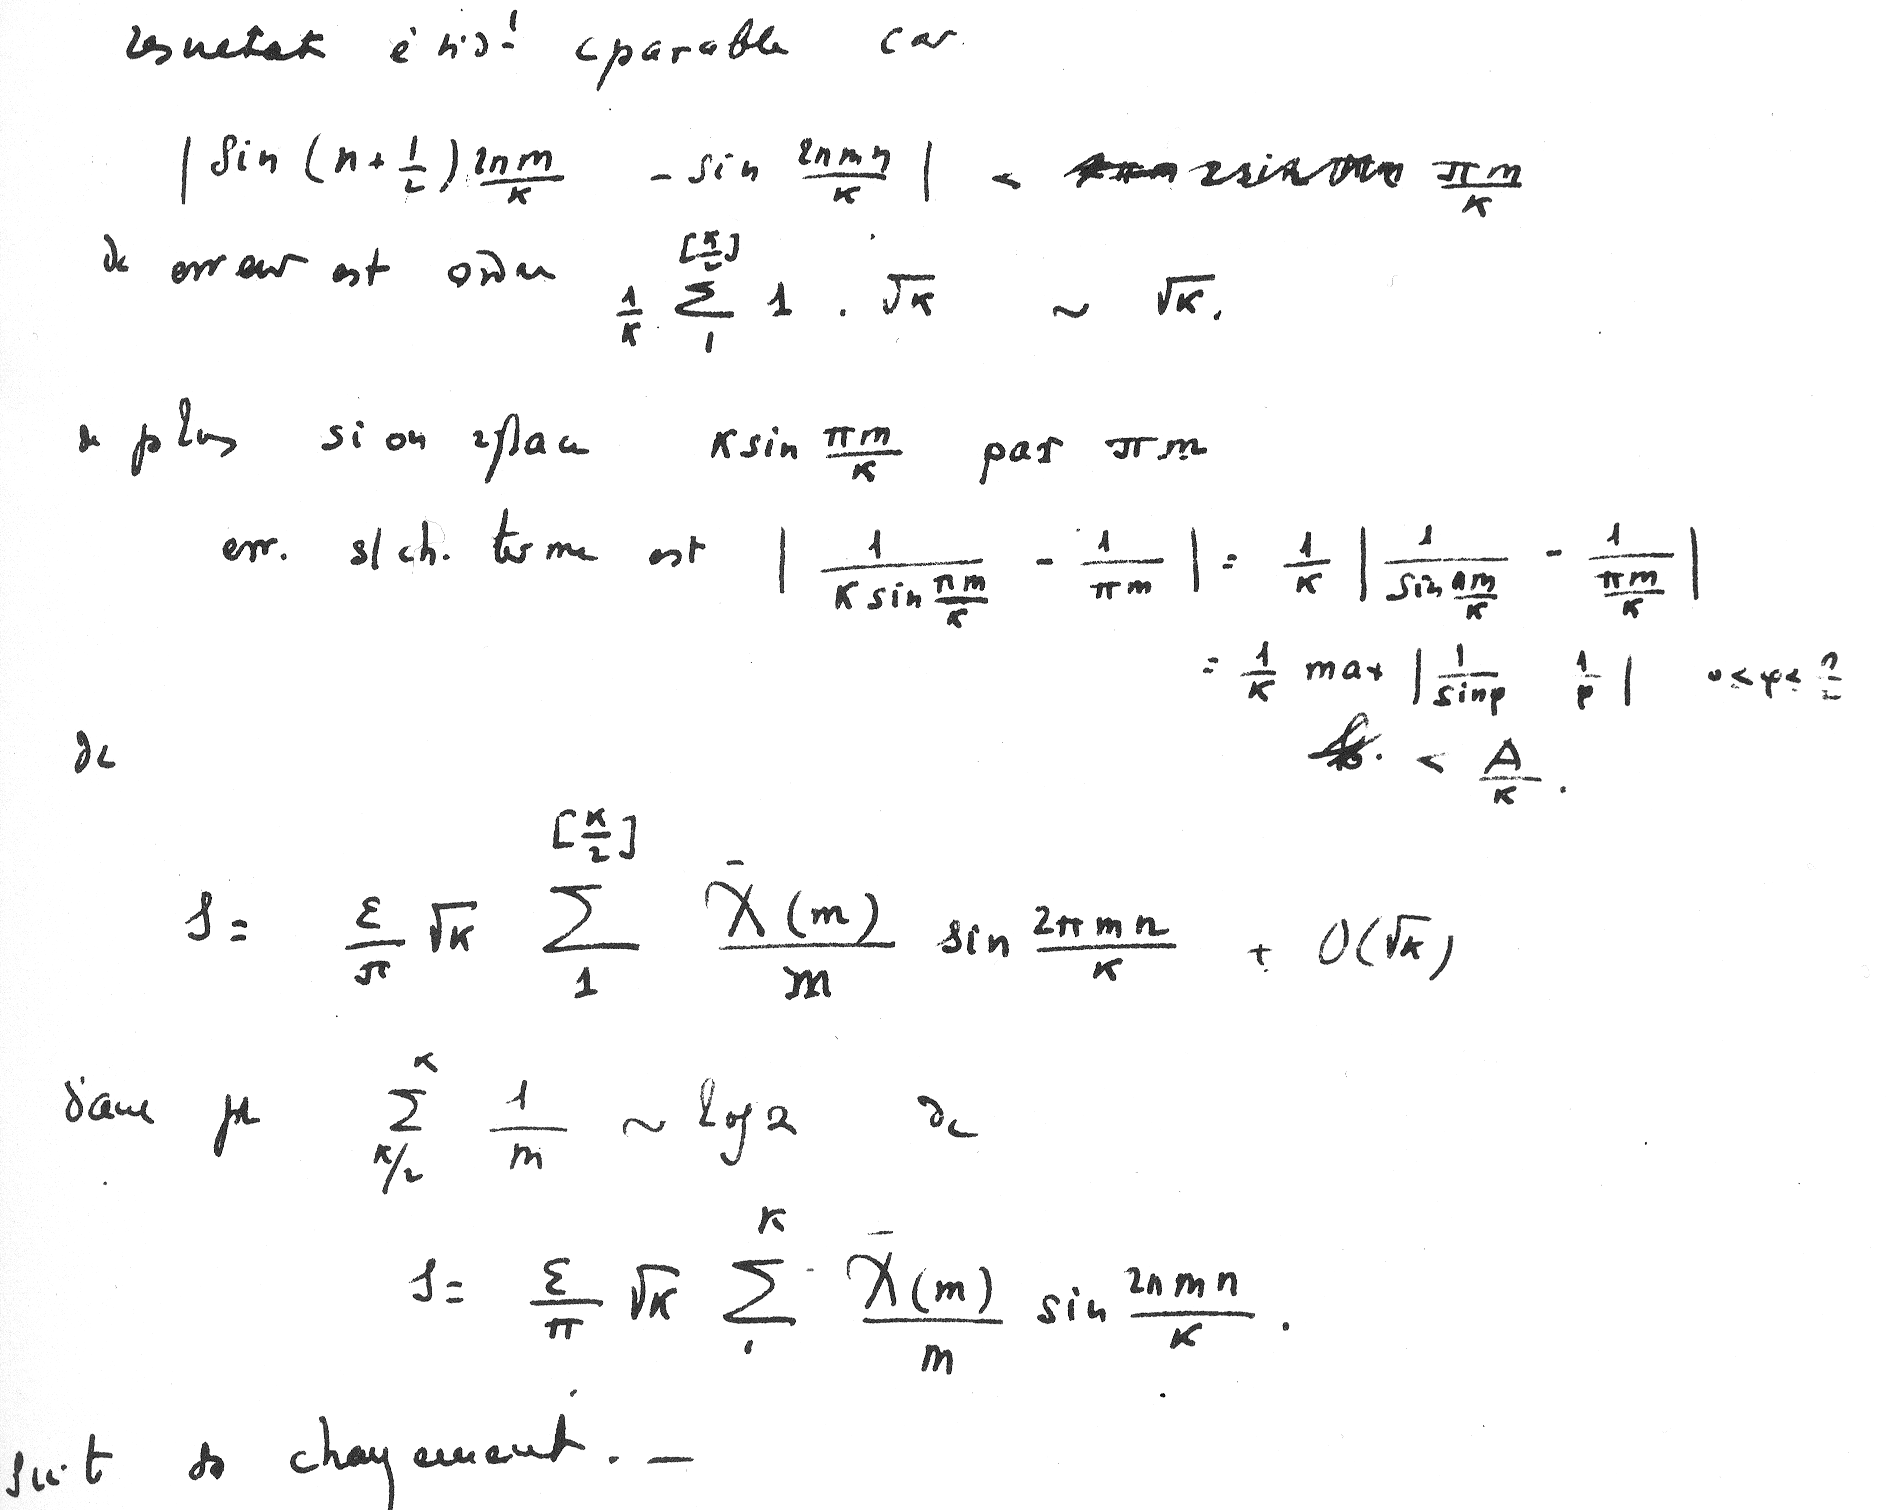 resultat cparable car
| sin (n + 1/2) 2πm/K - sin 2πmn/K | < πm/K
dc erreur est ordre 1/K Σ_1^[K/2] 1 . √K ~ √K.
de plus si on rplace K sin πm/K par πm
err. s/ ch. terme est | 1/(K sin πm/K) - 1/(πm) | = 1/K | 1/(sin πm/K) - 1/(πm/K) |
= 1/K max | 1/sin φ 1/φ | 0<φ<π/2
< A/K .
dc
S = ε/π √K Σ_1^[K/2] χ̄(m)/m sin 2πmn/K + O(√K)
d'autre pt Σ_{K/2}^K 1/m ~ log 2 dc
S = ε/π √K Σ_1^K χ̄(m)/m sin 2πmn/K .
suit changement. —